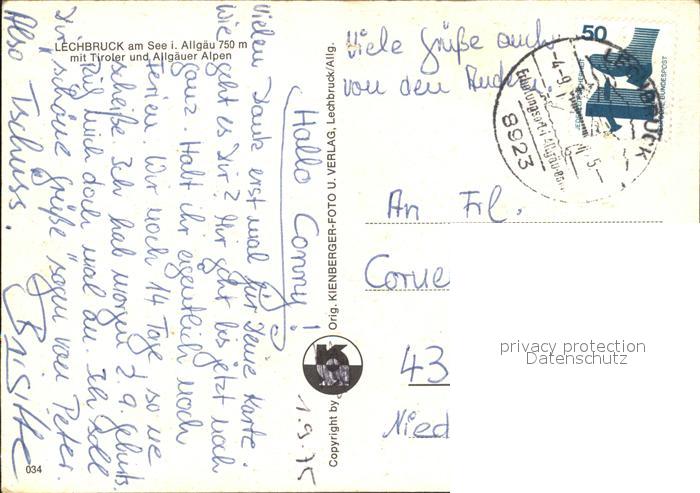 LECHBRUCK am See i. Allgäu 750 m
mit Tiroler und Allgäuer Alpen
Hallo Conny!
Vielen Dank erst mal für Deine Karte.
Wie geht es Dir? Mir geht bis jetzt noch
ganz. Habt ihr eigentlich noch
Ferien. Wir noch 14 Tage so ne
scheiße. Ich hab morgen 2.9. Geburts.
Ruf mich doch mal an. Ich soll
Dir schöne Grüße "sagen von Peter.
Also Tschuss.
1.9.75
Viele Grüße auch
von den Andern.
Copyright by Orig. KIENBERGER-FOTO U. VERLAG, Lechbruck/Allg.
K
034
50
DEUTSCHE BUNDESPOST
LECHBRUCK
8923
An Frl.
43
Nied
privacy protection
Datenschutz